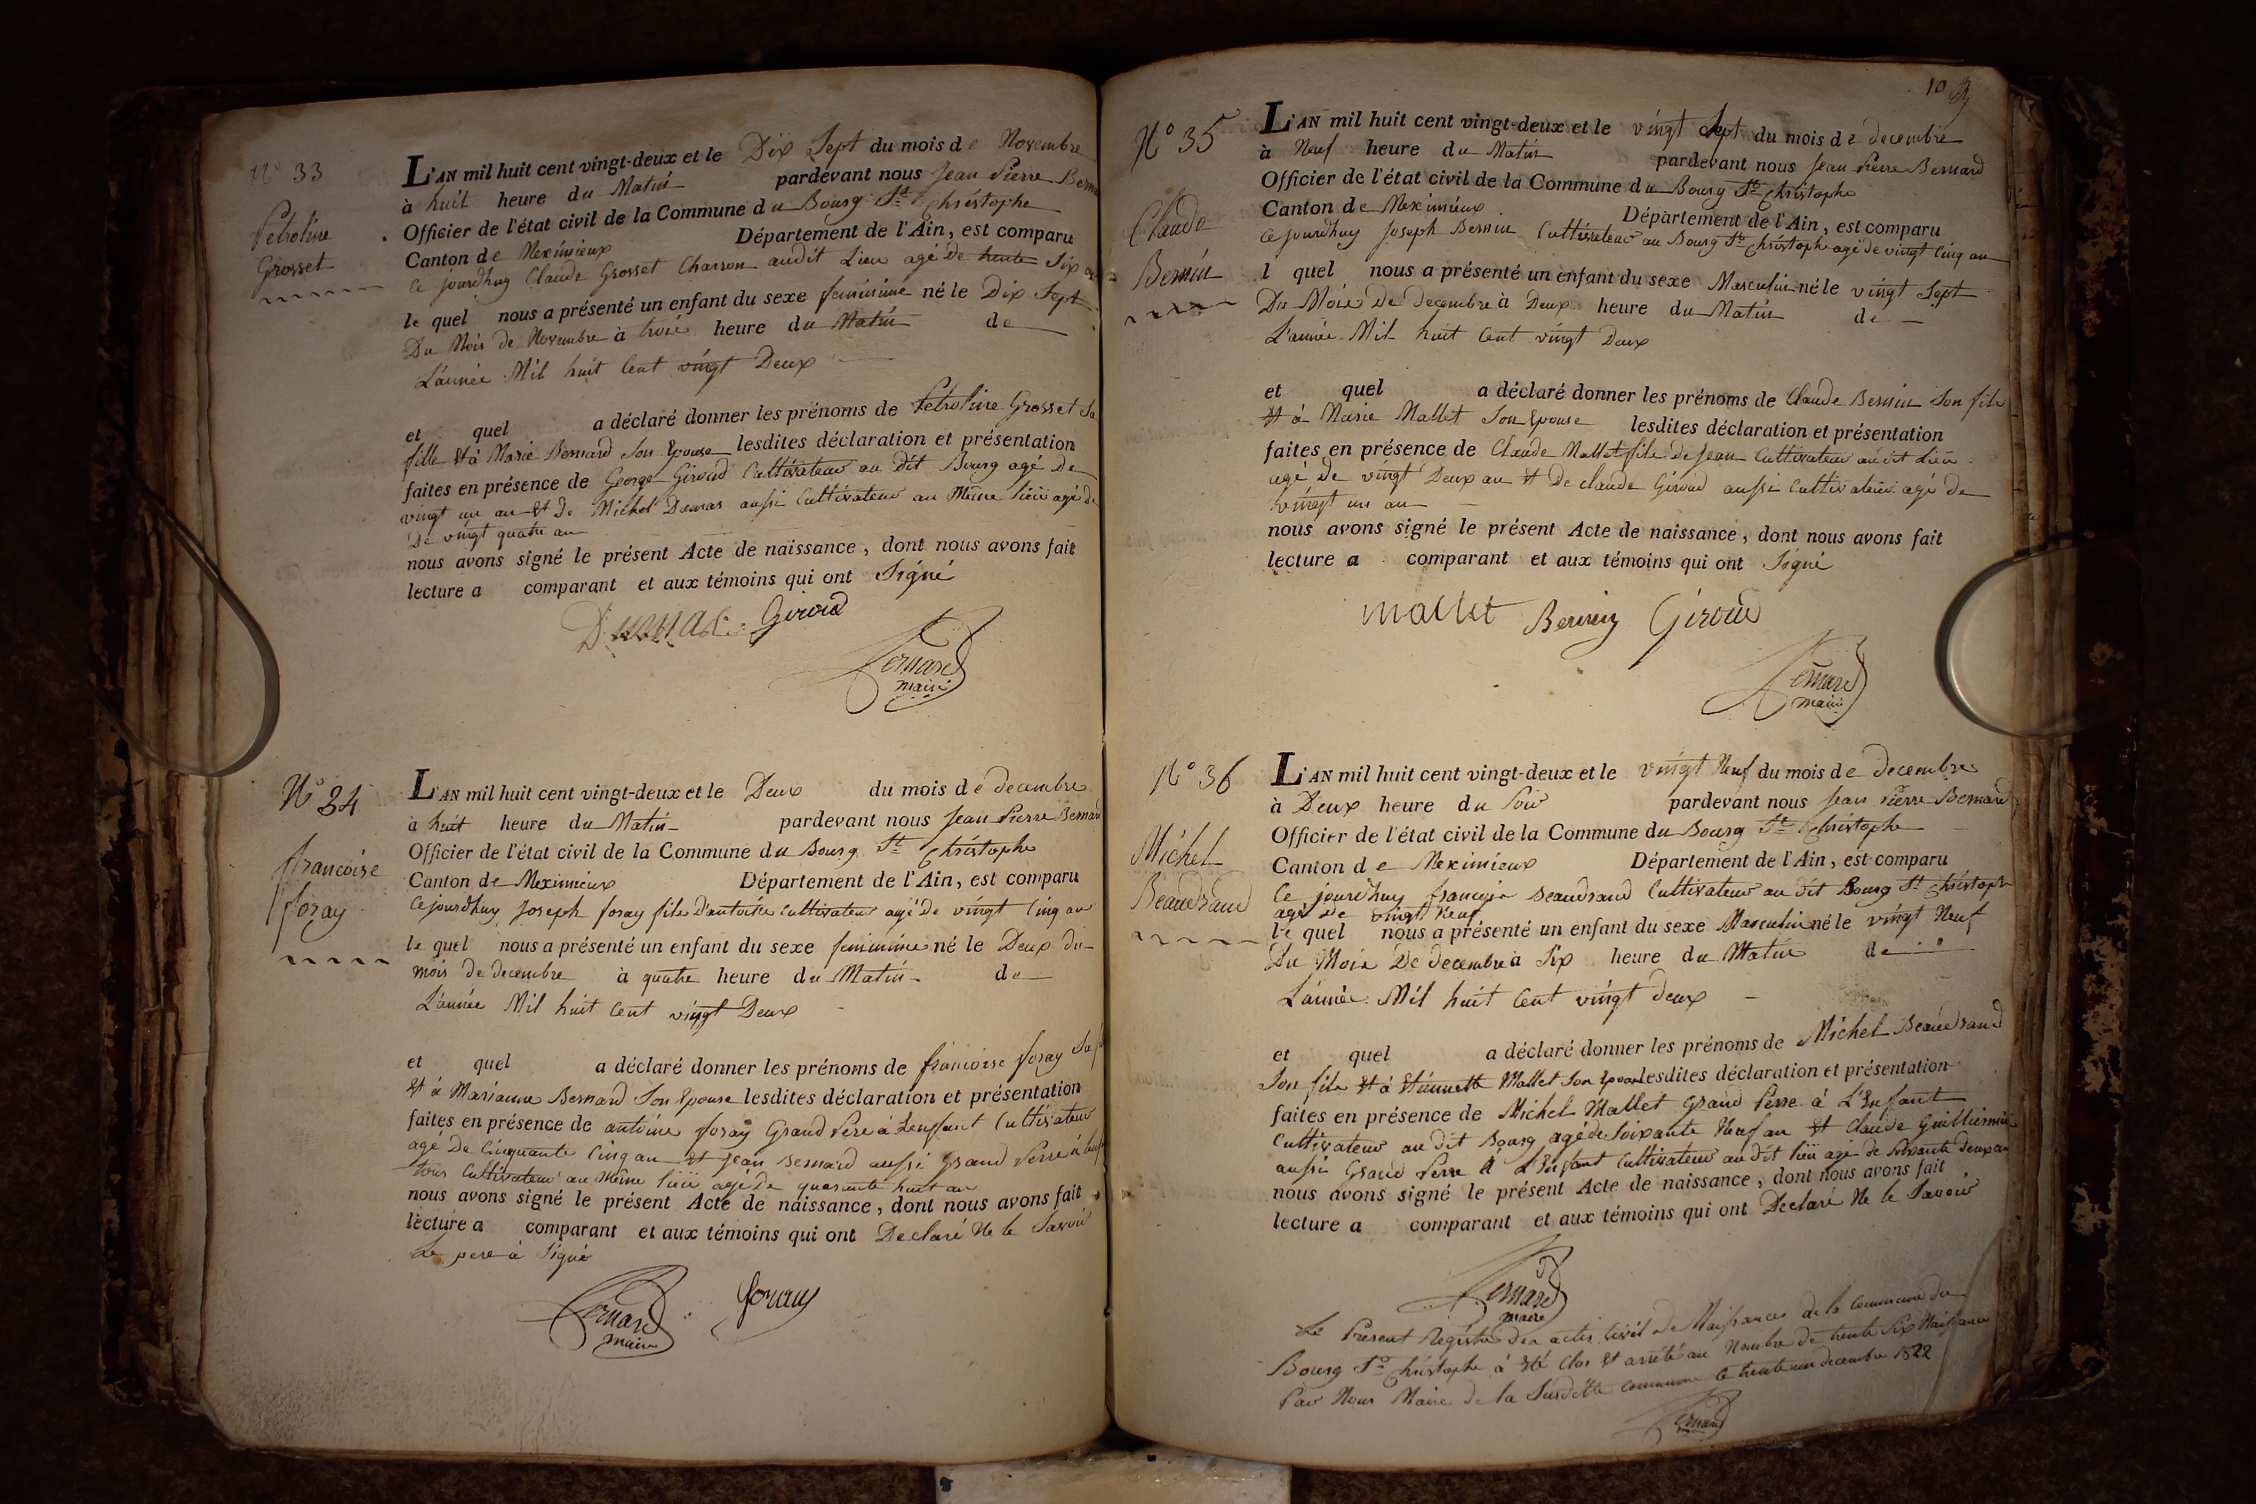 N° 33
Petroline
Grosset
L'AN mil huit cent vingt-deux et le Dix Sept du mois de Novembre
à huit heure du Matin pardevant nous Jean Pierre
Officier de l'état civil de la Commune du Bourg St Christophe
Canton de Meximieux Département de l'Ain, est comparu
Ce jourdhuy Claude Grosset Charron audit Lieu agé de trente Six
le quel nous a présenté un enfant du sexe feminine né le Dix Sept
Du Mois de Novembre à trois heure du Matin de
L'année Mil huit Cent vingt Deux
et quel a déclaré donner les prénoms de Petroline Grosset Sa
fille Et à Marie Bernard Son Epouse lesdites déclaration et présentation
faites en présence de George Giroud Cultivateur au dit Bourg agé De
vingt un an Et De Michel Dumas aussi Cultivateur au Même lieu agé de
De vingt quatre an
nous avons signé le présent Acte de naissance, dont nous avons fait
lecture a comparant et aux témoins qui ont Signé
Dumas Giroud
Bernard
maire
N° 34
francoise
foray
L'AN mil huit cent vingt-deux et le Deux du mois de decembre
à huit heure du Matin pardevant nous Jean Pierre Bernard
Officier de l'état civil de la Commune du Bourg St Christophe
Canton de Meximieux Département de l'Ain, est comparu
Ce jourdhuy Joseph foray fils d'antoine Cultivateur agé de vingt Cinq an
le quel nous a présenté un enfant du sexe feminine né le Deux du
mois de decembre à quatre heure du Matin de
L'année Mil huit Cent vingt Deux
et quel a déclaré donner les prénoms de francoise foray Sa
Et à Marianne Bernard Son Epouse lesdites déclaration et présentation
faites en présence de antoine foray Grand Pere à Lenfant Cultivateur
agé De Cinquante Cinq an Et Jean Bernard aussi Grand Perre à
Cultivateur au Même lieu agé De quarante huit an
nous avons signé le présent Acte de naissance, dont nous avons fait
lecture a comparant et aux témoins qui ont Declaré Ne le Savoir
Le pere à Signé
Bernard
maire
foray
10
N° 35
Claude
Bernin
L'AN mil huit cent vingt-deux et le vingt Sept du mois de decembre
à Neuf heure du Matin pardevant nous Jean Pierre Bernard
Officier de l'état civil de la Commune du Bourg St Christophe
Canton de Meximieux Département de l'Ain, est comparu
Ce jourdhuy Joseph Bernin Cultivateur au Bourg St Christophe agé de vingt Cinq an
l quel nous a présenté un enfant du sexe Masculin né le vingt Sept
Du Mois De decembre à Deux heure du Matin de
L'année Mil huit Cent vingt Deux
et quel a déclaré donner les prénoms de Claude Bernin Son fils
Et à Marie Mallet Son Epouse lesdites déclaration et présentation
faites en présence de Claude Mallet fils de Jean Cultivateur audit Lieu
agé De vingt Deux an Et De Claude Giroud aussi Cultivateur agé de
vingt un an
nous avons signé le présent Acte de naissance, dont nous avons fait
lecture a comparant et aux témoins qui ont Signé
Mallet Bernin Giroud
Bernard
maire
N° 36
Michel
Beaudrand
L'AN mil huit cent vingt-deux et le vingt Neuf du mois de decembre
à Deux heure du Soir pardevant nous Jean Pierre Bernard
Officier de l'état civil de la Commune du Bourg St Christophe
Canton de Meximieux Département de l'Ain, est comparu
Ce jourdhuy francois Beaudrand Cultivateur au dit Bourg St Christophe
agé De vingt Neuf
le quel nous a présenté un enfant du sexe Masculin né le vingt Neuf
Du Mois De decembre à Six heure du Matin de
L'année Mil huit Cent vingt deux
et quel a déclaré donner les prénoms de Michel Beaudrand
Son fils Et à Etiennette Mallet Son Epouse lesdites déclaration et présentation
faites en présence de Michel Mallet Grand Perre à L'Enfant
Cultivateur au dit Bourg agé de Soixante Neuf an Et Claude Guillermin
aussi Grand Perre à L'Enfant Cultivateur au dit lieu agé de Soixante deux an
nous avons signé le présent Acte de naissance, dont nous avons fait
lecture a comparant et aux témoins qui ont Declaré Ne le Savoir
Bernard
maire
Le Present Registre des actes Civil de Naissances de la Commune du
Bourg St Christophe à Eté Clos Et arrêté au Nombre de trente Six Naissances
Par Nous Maire de la Susditte Commune le trente un decembre 1822
Bernard
maire